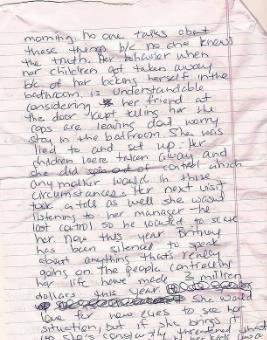 morning. no one talks about
these things b/c no one knows
the truth. Her behavior when
her children got taken away
b/c of her locking herself in the
bathroom is understandable
considering her friend at
the door kept telling her the
cops are leaving dont worry
stay in the bathroom. She was
lied to and set up. Her
children were taken away and
she did spin out of control which
any mother would in those
circumstances. Her next visit
took a toll as well she wasn't
listening to her manager - he
lost control so he wanted to scare
her. Now this year Britney
has been silenced to speak
about anything thats really
going on. The people controlling
her life have made 3 million
dollars this year. She would
love for new eyes to see her
situation, but if she brings it
up she's constantly threatened